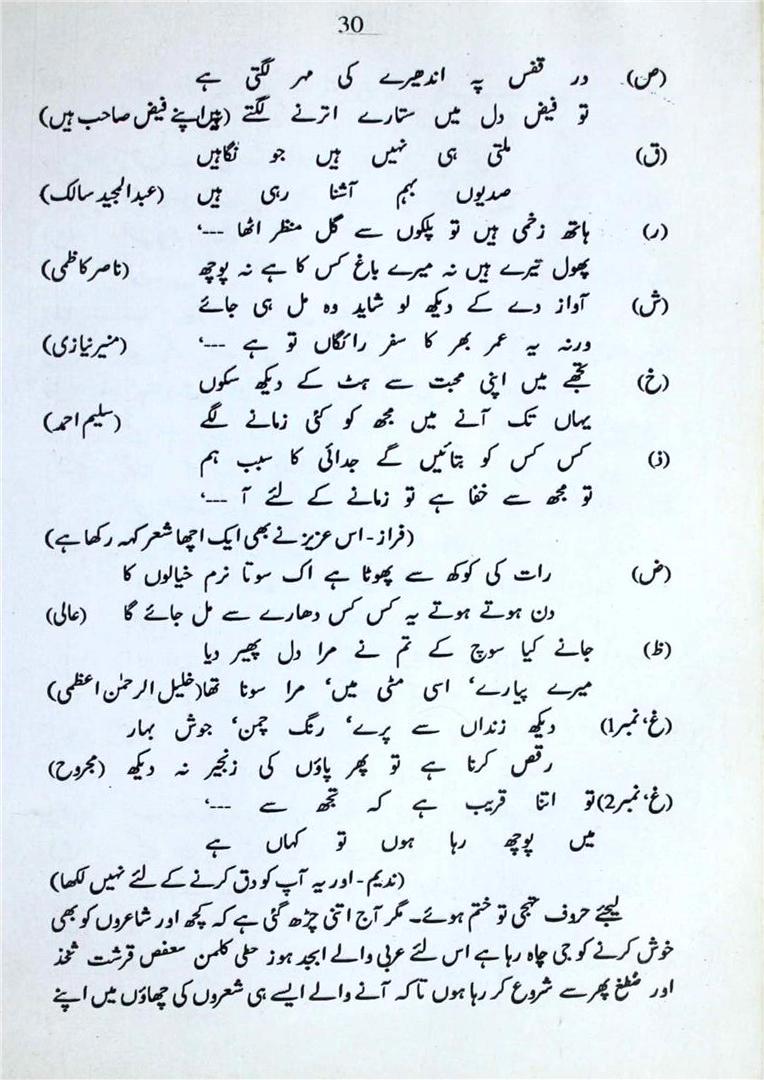 30
(ص) در قفس پہ اندھیرے کی مہر لگتی ہے
تو فیض دل میں ستارے اترنے لگتے (ہیں اپنے فیض صاحب ہیں)
(ق) ملتی ہی نہیں ہیں جو نگاہیں
صدیوں بہم آشنا رہی ہیں (عبدالمجید سالک)
(ر) ہاتھ زخمی ہیں تو پلکوں سے گل منظر اٹھا ---،
پھول تیرے ہیں نہ میرے باغ کس کا ہے نہ پوچھ (ناصر کاظمی)
(ش) آواز دے کے دیکھ لو شاید وہ مل ہی جائے
ورنہ یہ عمر بھر کا سفر رائگاں تو ہے ---، (منیر نیازی)
(خ) تجھے میں اپنی محبت سے ہٹ کے دیکھ سکوں
یہاں تک آنے میں مجھ کو کئی زمانے لگے (سلیم احمد)
(ذ) کس کس کو بتائیں گے جدائی کا سبب ہم
تو مجھ سے خفا ہے تو زمانے کے لئے آ ---،
(فراز - اس عزیز نے بھی ایک اچھا شعر کہہ رکھا ہے)
(ض) رات کی کوکھ سے پھوٹا ہے اک سوتا نرم خیالوں کا
دن ہوتے ہوتے یہ کس کس دھارے سے مل جائے گا (عالی)
(ظ) جانے کیا سوچ کے تم نے مرا دل پھیر دیا
میرے پیارے، اسی مٹی میں، مرا سونا تھا (خلیل الرحمٰن اعظمی)
(غ، نمبر1) دیکھ زنداں سے پرے، رنگ چمن، جوش بہار
رقص کرنا ہے تو پھر پاؤں کی زنجیر نہ دیکھ (مجروح)
(غ، نمبر2) تو اتنا قریب ہے کہ تجھ سے ---،
میں پوچھ رہا ہوں تو کہاں ہے
(ندیم - اور یہ آپ کو دق کرنے کے لئے نہیں لکھا)
لیجئے حروف تہجی تو ختم ہوئے۔ مگر آج اتنی چڑھ گئی ہے کہ کچھ اور شاعروں کو بھی
خوش کرنے کو جی چاہ رہا ہے اس لئے عربی والے ابجد ہوز حطی کلمن سعفص قرشت ثخذ
اور ضظغ پھر سے شروع کر رہا ہوں تاکہ آنے والے ایسے ہی شعروں کی چھاؤں میں اپنے